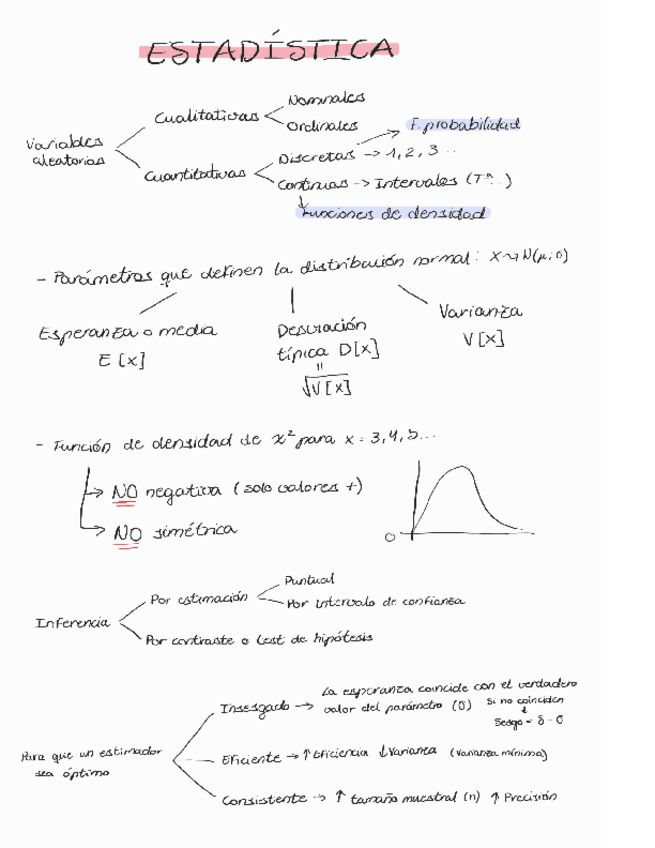 ESTADÍSTICA
Variables aleatorias
Cualitativas
Nominales
Ordinales
F. probabilidad
Cuantitativas
Discretas → 1, 2, 3 ...
Continuas → Intervalos (Tª...)
Funciones de densidad
- Parámetros que definen la distribución normal: X ~ N(μ; σ)
Esperanza o media
E [x]
Desviación
típica D[x]
=
√V[x]
Varianza
V [x]
- Función de densidad de x² para x = 3, 4, 5 ...
→ NO negativa (solo valores +)
→ NO simétrica
0
Inferencia
Por estimación
Puntual
Por intervalo de confianza
Por contraste o test de hipótesis
Para que un estimador
sea óptimo
Insesgado →
La esperanza coincide con el verdadero
valor del parámetro (θ)
Si no coinciden
↓
Sesgo = δ - θ
Eficiente → ↑ Eficiencia ↓ Varianza (Varianza mínima)
Consistente → ↑ tamaño muestral (n) ↑ Precisión